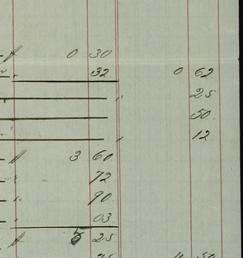 0 30
32 0 62
25
50.
12
3 60
72
90
03
5 25